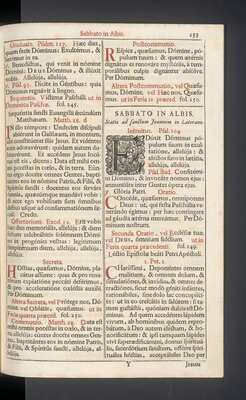 Sabbato in Albis. 153
Graduale. Psalm. 117. Hæc dies,
quam fecit Dominus: Exultemus, &
lætemur in ea.
℣. Benedictus, qui venit in nomine
Domini: Deus Dominus, & illuxit
nobis. Alleluja, alleluja.
℣. Psal. 95. Dicite in Gentibus: quia
Dominus regnavit à ligno.
Sequentia Victimæ Paschali ut in
Dominica Paschæ. fol. 145.
Sequentia sancti Evangelii secundùm
Matthæum. Matth. 28. d
In illo tempore: Undecim discipuli
abierunt in Galilæam, in montem,
ubi constituerat illis Jesus. Et videntes
eum adoraverunt: quidam autem du-
bitaverunt. Et accedens Jesus locu-
tus est eis, dicens: Data est mihi om-
nis potestas in cœlo, & in terra. Eun-
tes ergo docete omnes gentes, bapti-
zantes eos in nomine Patris, & Filii, &
Spiritûs sancti: docentes eos servare
omnia, quæcumque mandavi vobis:
& ecce ego vobiscum sum omnibus
diebus usque ad consummationem sæ-
culi. Credo.
Offertorium. Exod. 12. Erit vobis
hic dies memorialis, alleluja: & diem
festum celebrabitis solemnem Domi-
no in progenies vestras: legitimum
sempiternum diem, alleluja, alleluja,
alleluja.
Secreta.
Hostias, quæsumus, Domine, pla-
catus assume: quas & pro rena-
torum expiatione peccati deferimus,
& pro acceleratione cœlestis auxilii.
Per Dominum.
Altera Secreta, vel Protege nos, Do-
mine. vel Oblatis, quæsumus. ut in
Feria quarta præced. fol. 150.
Communio. Matth. 28. Data est
mihi omnis potestas in cœlo, & in ter-
ra, alleluja: euntes docete omnes gen-
tes, baptizantes eos in nomine Patris,
& Filii, & Spiritûs sancti, alleluja, al-
leluja.
Postcommunio.
Respice, quæsumus, Domine, po-
pulum tuum: & quem æternis
dignatus es renovare mysteriis, à tem-
poralibus culpis dignanter absolve.
Per Dominum.
Altera Postcommunio, vel Quæsu-
mus, Domine. vel Hæc nos, Quæsu-
mus. ut in Feria 4. præced. fol. 150.
SABBATO IN ALBIS.
Statio ad sanctum Joannem in Laterano.
Introitus. Psal. 104
Eduxit Dominus po-
pulum suum in exul-
tatione, alleluja: &
electos suos in lætitia,
alleluja, alleluja.
Psal. ibid. Confitemini
Domino, & invocate nomen ejus:
annuntiate inter Gentes opera ejus.
Gloria Patri. Oratio.
Concede, quæsumus, omnipotens
Deus: ut, qui festa Paschalia ve-
nerando egimus: per hæc contingere
ad gaudia æterna mereamur. Per Do-
minum nostrum.
Secunda Oratio, vel Ecclesiæ tuæ.
vel Deus, omnium fidelium. ut in
Feria quarta præcedenti. fol. 149.
Lectio Epistolæ beati Petri Apostoli.
1. Pet. 2.
Charissimi, Deponentes omnem
malitiam, & omnem dolum, &
simulationes, & invidias, & omnes de-
tractiones, sicut modò geniti infantes,
rationabiles, sine dolo lac concupisci-
te: ut in eo crescatis in salutem: si ta-
men gustâstis, quoniam dulcis est Do-
minus. Ad quem accedentes lapidem
vivum, ab hominibus quidem repro-
batum, à Deo autem electum, & ho-
norificatum: & ipsi tamquam lapides
vivi superædificamini, domus spiritua-
lis, sacerdotium sanctum, offerre spiri-
tuales hostias, acceptabiles Deo per
Y Jesum